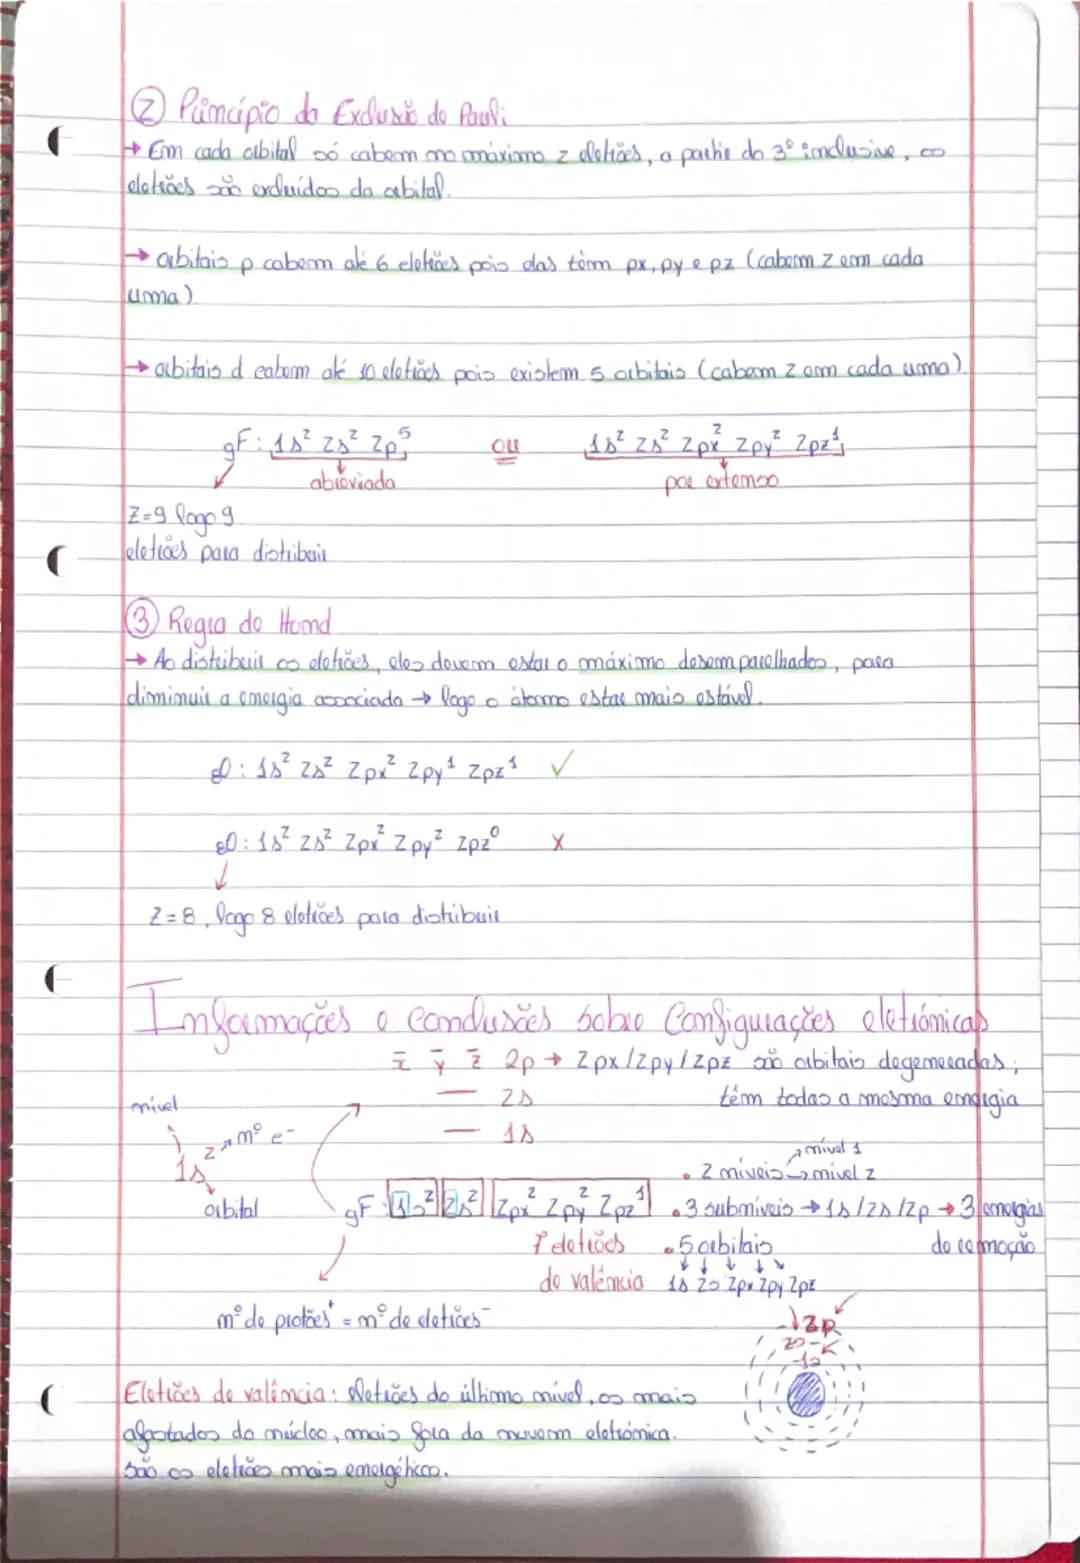 ② Princípio da Exclusão de Pauli
→ Em cada orbital só cabem no máximo 2 eletrões, a partir do 3º inclusive, os
eletrões são excluídos da orbital.
→ orbitais p cabem até 6 eletrões pois elas têm px, py e pz (cabem 2 em cada
uma)
→ orbitais d cabem até 10 eletrões pois existem 5 orbitais (cabem 2 em cada uma)
₉F: 1s² 2s² 2p⁵ ou 1s² 2s² 2px² 2py² 2pz¹
abreviada por extenso
Z=9 logo 9
eletrões para distribuir
③ Regra de Hund
→ Ao distribuir os eletrões, eles devem estar o máximo desemparelhados, para
diminuir a energia associada → logo o átomo estar mais estável.
₈O: 1s² 2s² 2px² 2py¹ 2pz¹ ✓
₈O: 1s² 2s² 2px² 2py² 2pz⁰ X
Z=8, logo 8 eletrões para distribuir
Informações e conclusões sobre Configurações eletrónicas
x y z 2p → 2px/2py/2pz são orbitais degeneradas;
nível — 2s têm todas a mesma energia
— 1s
1s² → nº e-
orbital
• 2 níveis → nível 1 → nível 2
₉F: 1s² 2s² 2px² 2py² 2pz¹ • 3 subníveis → 1s/2s/2p → 3 energias
de remoção
7 eletrões • 5 orbitais
de valência 1s 2s 2px 2py 2pz
nº de protões⁺ = nº de eletrões⁻
2p
2s
1s
Eletrões de valência: eletrões do último nível, os mais
afastados do núcleo, mais fora da nuvem eletrónica.
são os eletrões mais energéticos.